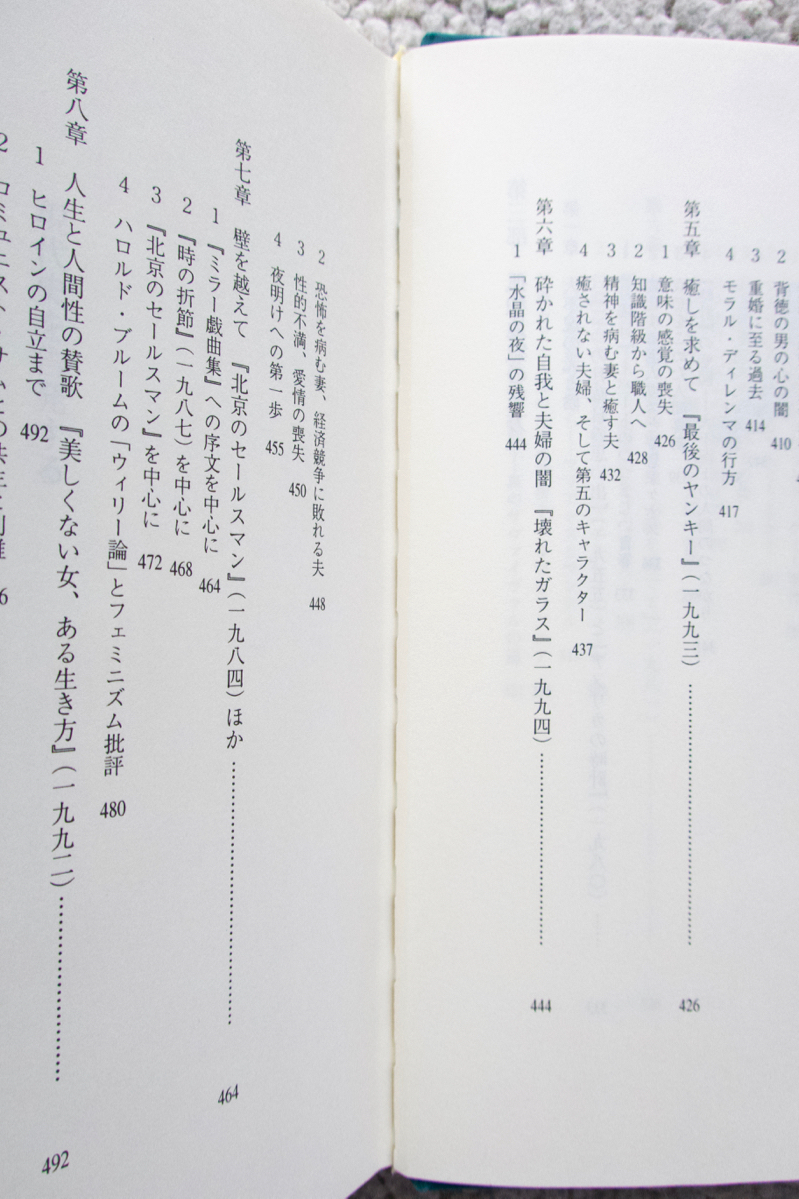 2 背徳の男の心の闇 410
3 重婚に至る過去 414
4 モラル・ディレンマの行方 417
第五章 癒しを求めて 『最後のヤンキー』(一九九三)……………… 426
1 意味の感覚の喪失 426
2 知識階級から職人へ 428
3 精神を病む妻と癒す夫 432
4 癒されない夫婦、そして第五のキャラクター 437
第六章 砕かれた自我と夫婦の闇 『壊れたガラス』(一九九四)……………… 444
1 「水晶の夜」の残響 444
2 恐怖を病む妻、経済競争に敗れる夫 448
3 性的不満、愛情の喪失 450
4 夜明けへの第一歩 455
第七章 壁を越えて 『北京のセールスマン』(一九八四)ほか……………… 464
1 『ミラー戯曲集』への序文を中心に 464
2 『時の折節』(一九八七)を中心に 468
3 『北京のセールスマン』を中心に 472
4 ハロルド・ブルームの「ウィリー論」とフェミニズム批評 480
第八章 人生と人間性の賛歌 『美しくない女、ある生き方』(一九九二)……………… 492
1 ヒロインの自立まで 492
2